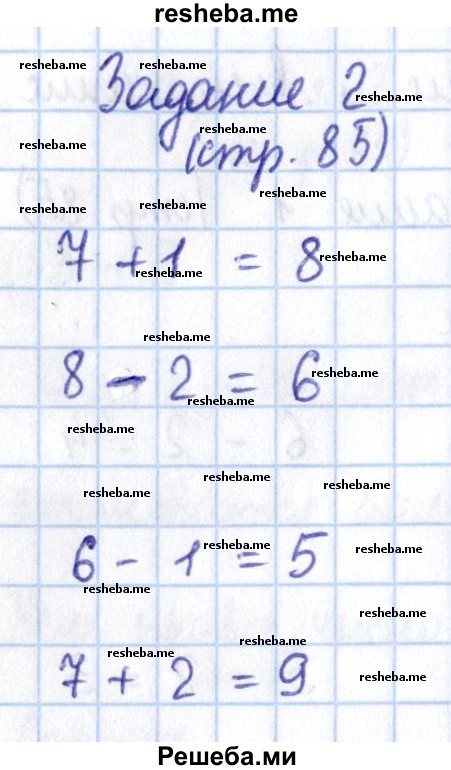 resheba.me
resheba.me resheba.me
Задание 2
resheba.me
resheba.me resheba.me
(стр. 85)
resheba.me
resheba.me resheba.me
7 + 1 = 8
resheba.me
resheba.me
resheba.me
8 - 2 = 6
resheba.me
resheba.me
resheba.me
resheba.me
resheba.me
resheba.me
6 - 1 = 5
resheba.me
resheba.me
resheba.me
resheba.me
resheba.me
resheba.me
7 + 2 = 9
resheba.me
Решеба.ми